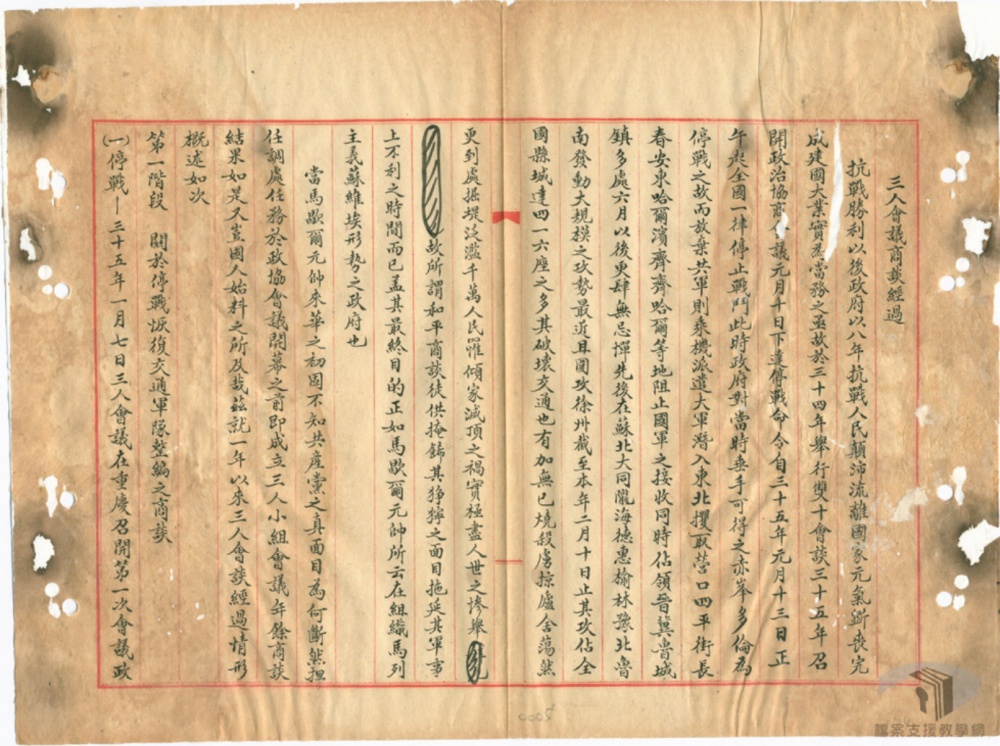 三人會議商談經過
抗戰勝利以後政府以八年抗戰人民顛沛流離國家元氣斲喪完
成建國大業實為當務之亟故於三十四年舉行雙十會談三十五年召
開政治協商會議元月十日下達停戰命令自三十五年元月十三日正
午起全國一律停止戰鬥此時政府對當時垂手可得之赤峯多倫為
停戰之故而放棄共軍則乘機派遣大軍潛入東北攫取營口四平街長
春安東哈爾濱齊齊哈爾等地阻止國軍之接收同時佔領晉冀魯城
鎮多處六月以後更肆無忌憚先後在蘇北大同隴海德惠榆林豫北魯
南發動大規模之攻勢最近且圍攻徐州截至本年二月十日止其攻佔全
國縣城達四一六座之多其破壞交通也有加無已燒殺虜掠廬舍蕩然
更到處掘堤泛濫千萬人民罹傾家滅頂之禍實極盡人世之慘舉
故所謂和平商談徒供掩飾其猙獰之面目拖延其軍事
上不利之時間而已蓋其最終目的正如馬歇爾元帥所云在組織馬列
主義蘇維埃形勢之政府也
當馬歇爾元帥來華之初固不知共產黨之真面目為何斷然担
任調處任務於政協會議開幕之前即成立三人小組會議年餘商談
結果如是又豈國人始料之所及哉茲就一年以來三人會談經過情形
概述如次
第一階段 關於停戰恢復交通軍隊整編之商談
(一)停戰—三十五年一月七日三人會議在重慶召開第一次會議政
0002
檔案支援教學網